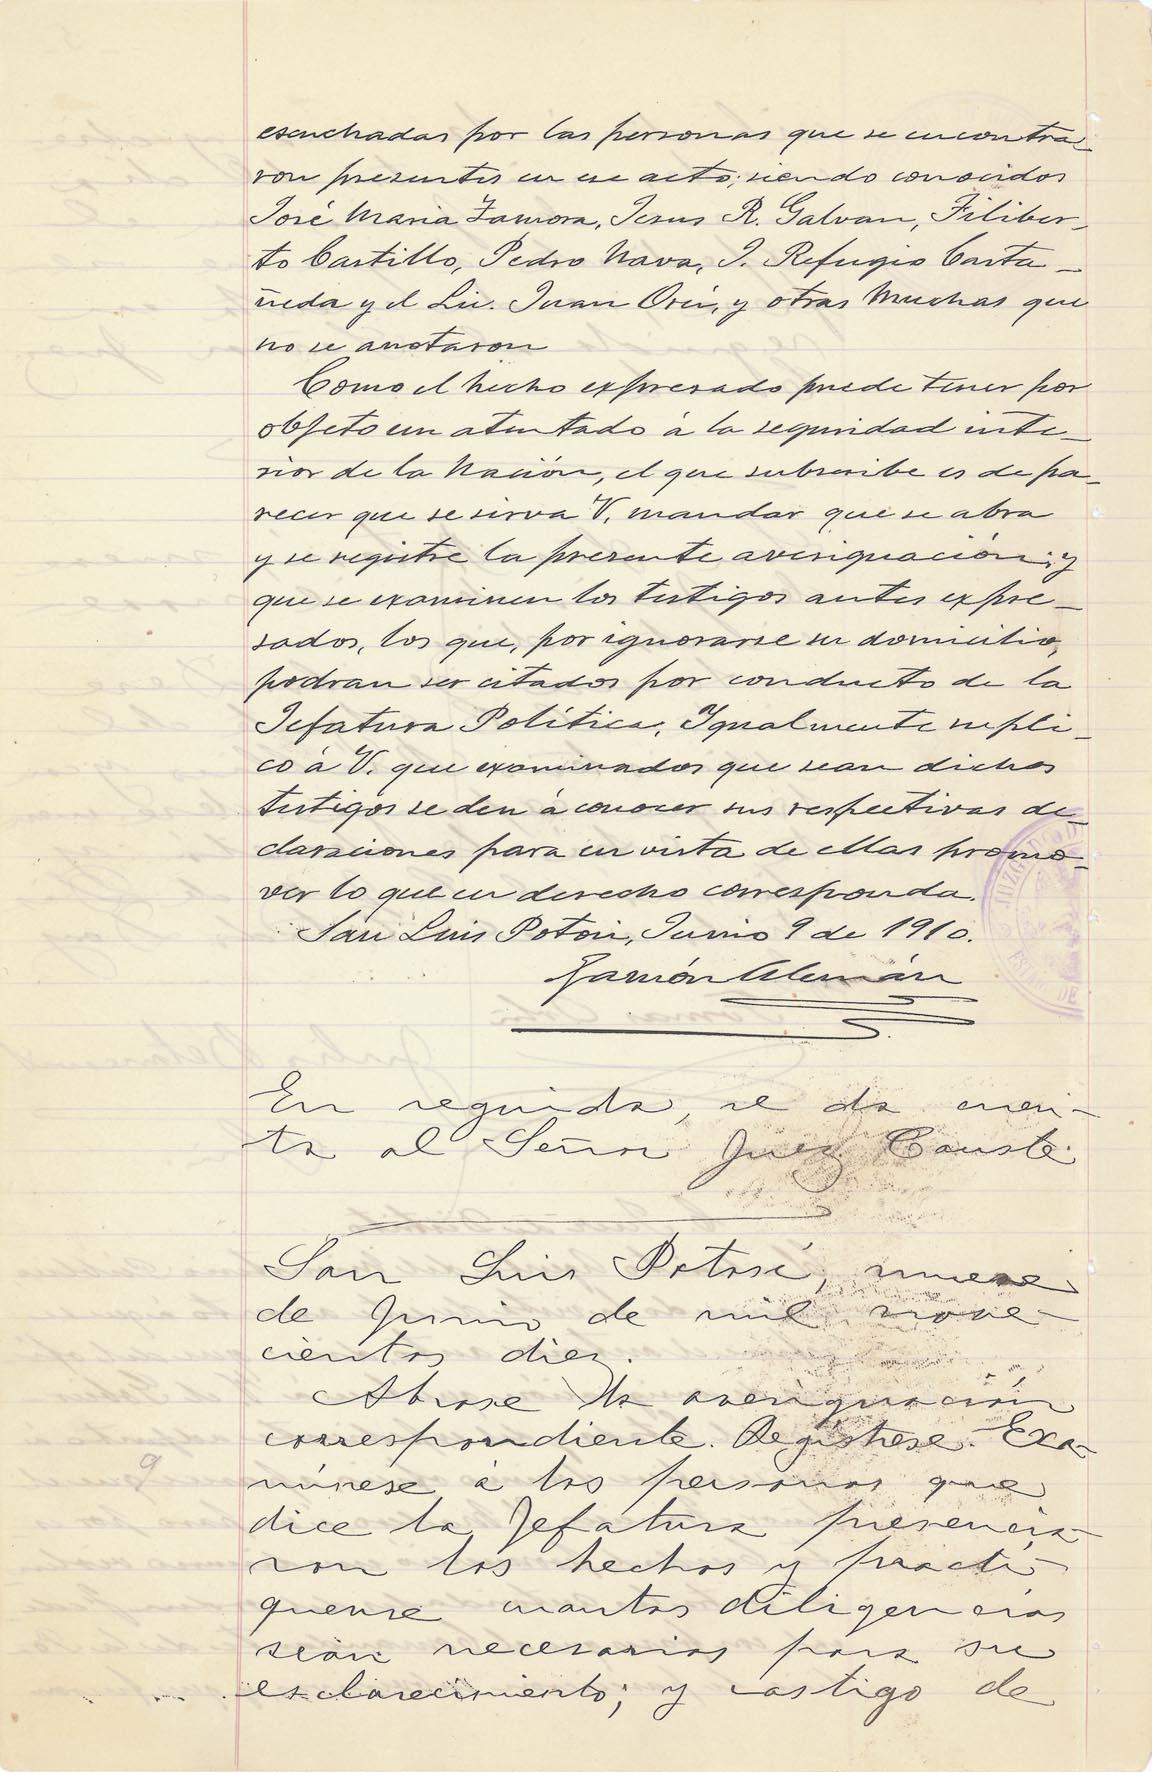 escuchadas por las personas que se encontra-
ron presentes en ese acto; siendo conocidos
José Maria Zamora, Jesus R. Galvan, Filiber-
to Castillo, Pedro Nava, J. Refugio Casta-
ñeda y el Lic. Juan y otras muchas que
no se anotaron
Como el hecho expresado puede tener por
objeto un atentado á la seguridad inte-
rior de la Nación, el que subscribe es de pa-
recer que se sirva V. mandar que se abra
y se registre la presente averiguación; y
que se examinen los testigos antes expre-
sados, los que, por ignorarse su domicilio,
podran ser citados por conducto de la
Jefatura Política; Igualmente supli-
co á V. que examinados que sean dichos
testigos se den á conocer sus respectivas de-
claraciones para en vista de ellas promo-
ver lo que en derecho corresponda.
San Luis Potosi, Junio 9 de 1910.
Ramón Alemán
JUZGADO
ESTADO DE
En seguida, se da cuen-
ta al Señor Juez. Conste.
San Luis Potosí, nueve
de Junio de mil nove-
cientos diez.
Abrase la averiguación
correspondiente. Regístrese. Exa-
mínese á las personas que
dice la Jefatura presencia-
ron los hechos y practi-
quense cuantas diligencias
sean necesarias para su
esclarecimiento; y castigo de